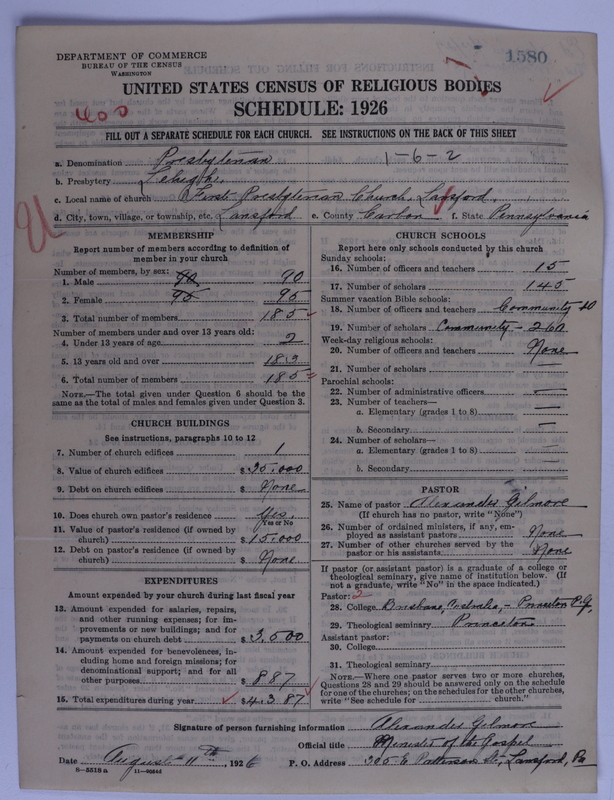 1580
DEPARTMENT OF COMMERCE
BUREAU OF THE CENSUS
WASHINGTON
UNITED STATES CENSUS OF RELIGIOUS BODIES
SCHEDULE: 1926
400
FILL OUT A SEPARATE SCHEDULE FOR EACH CHURCH. SEE INSTRUCTIONS ON THE BACK OF THIS SHEET
a. Denomination Presbyterian 1-6-2
b. Presbytery Lehigh
c. Local name of church First Presbyterian Church, Lansford,
d. City, town, village, or township, etc. Lansford e. County Carbon f. State Pennsylvania
MEMBERSHIP
Report number of members according to definition of
member in your church
Number of members, by sex:
1. Male 90 90
2. Female 95 95
3. Total number of members 185
Number of members under and over 13 years old:
4. Under 13 years of age 2
5. 13 years old and over 183
6. Total number of members 185
NOTE.—The total given under Question 6 should be the
same as the total of males and females given under Question 3.
CHURCH BUILDINGS
See instructions, paragraphs 10 to 12
7. Number of church edifices 1
8. Value of church edifices $ 35,000
9. Debt on church edifices $ None
10. Does church own pastor's residence Yes.
Yes or No
11. Value of pastor's residence (if owned by
church) $ 15,000
12. Debt on pastor's residence (if owned by
church) $ None
EXPENDITURES
Amount expended by your church during last fiscal year
13. Amount expended for salaries, repairs,
and other running expenses; for im-
provements or new buildings; and for
payments on church debt $ 3,500
14. Amount expended for benevolences, in-
cluding home and foreign missions; for
denominational support; and for all
other purposes $ 887
15. Total expenditures during year $ 4,387
CHURCH SCHOOLS
Report here only schools conducted by this church
Sunday schools:
16. Number of officers and teachers 15
17. Number of scholars 145
Summer vacation Bible schools:
18. Number of officers and teachers Community
19. Number of scholars Community - 260
Week-day religious schools:
20. Number of officers and teachers None
21. Number of scholars —
Parochial schools:
22. Number of administrative officers —
23. Number of teachers—
a. Elementary (grades 1 to 8) —
b. Secondary —
24. Number of scholars—
a. Elementary (grades 1 to 8) —
b. Secondary —
PASTOR
25. Name of pastor Alexander Gilmore
(If church has no pastor, write "None")
26. Number of ordained ministers, if any, em-
ployed as assistant pastors None
27. Number of other churches served by the
pastor or his assistants None
If pastor (or assistant pastor) is a graduate of a college or
theological seminary, give name of institution below. (If
not a graduate, write "No" in the space indicated.)
Pastor: 2
28. College Brisbane, Australia, - Princeton P.G.
29. Theological seminary Princeton
Assistant pastor:
30. College
31. Theological seminary
NOTE.—Where one pastor serves two or more churches,
Questions 28 and 29 should be answered only on the schedule
for one of the churches; on the schedules for the other churches,
write "See schedule for church."
Signature of person furnishing information Alexander Gilmore
Official title Minister of the Gospel
Date August 11th, 1926 P. O. Address 305 E. Patterson St., Lansford, Pa
8—5518 a 11—9056d